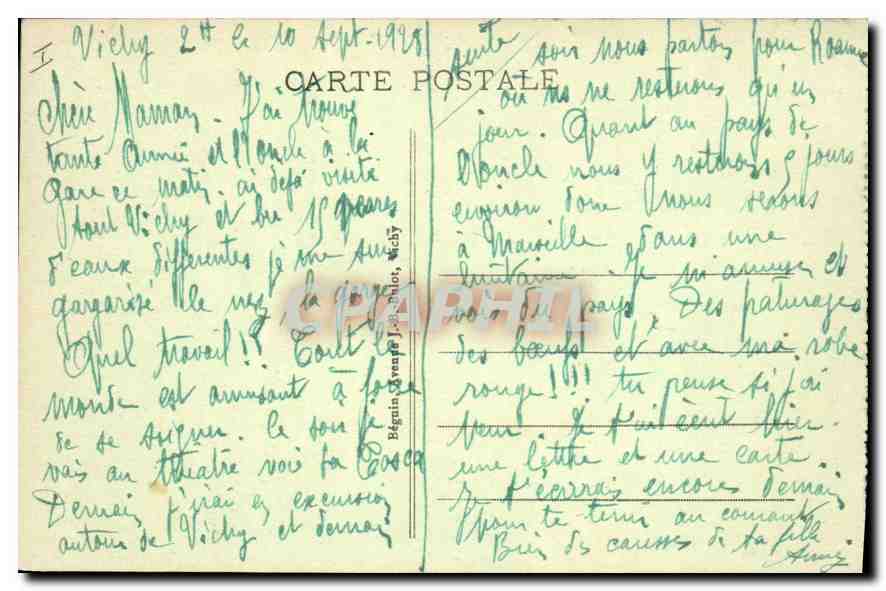 I
Vichy 2H le 10 sept. 1928
CARTE POSTALE
Chère Maman. J'ai trouvé
tante Année et l'oncle à la
gare ce matin. ai déjà visité
tout Vichy et bu 15
d'eaux différentes je me suis
gargarisé le nez la gorge
Quel travail!! Tout le
monde est amusant à force
de se soigner. le soir je
vais au théatre voir la Tosca
Demain j'irai en excursion
autour de Vichy et demain
Béguin, Avenue J.-B. Bulot, Vichy
CPAPHIL
suite soir nous partons pour Roanne
où ns ne resterons qu'un
jour. Quant au pays de
l'oncle nous y resterons 5 jours
environ donc nous serons
à Marseille dans une
huitaine. Je m'amuse et
vois du pays. Des paturages
des bœufs et avec ma robe
rouge!!! tu penses si j'ai
peur. Je t'ai écrit hier
une lettre et une carte
Je t'écrirai encore demain
pour te tenir au courant
Bien des caresses de ta fille